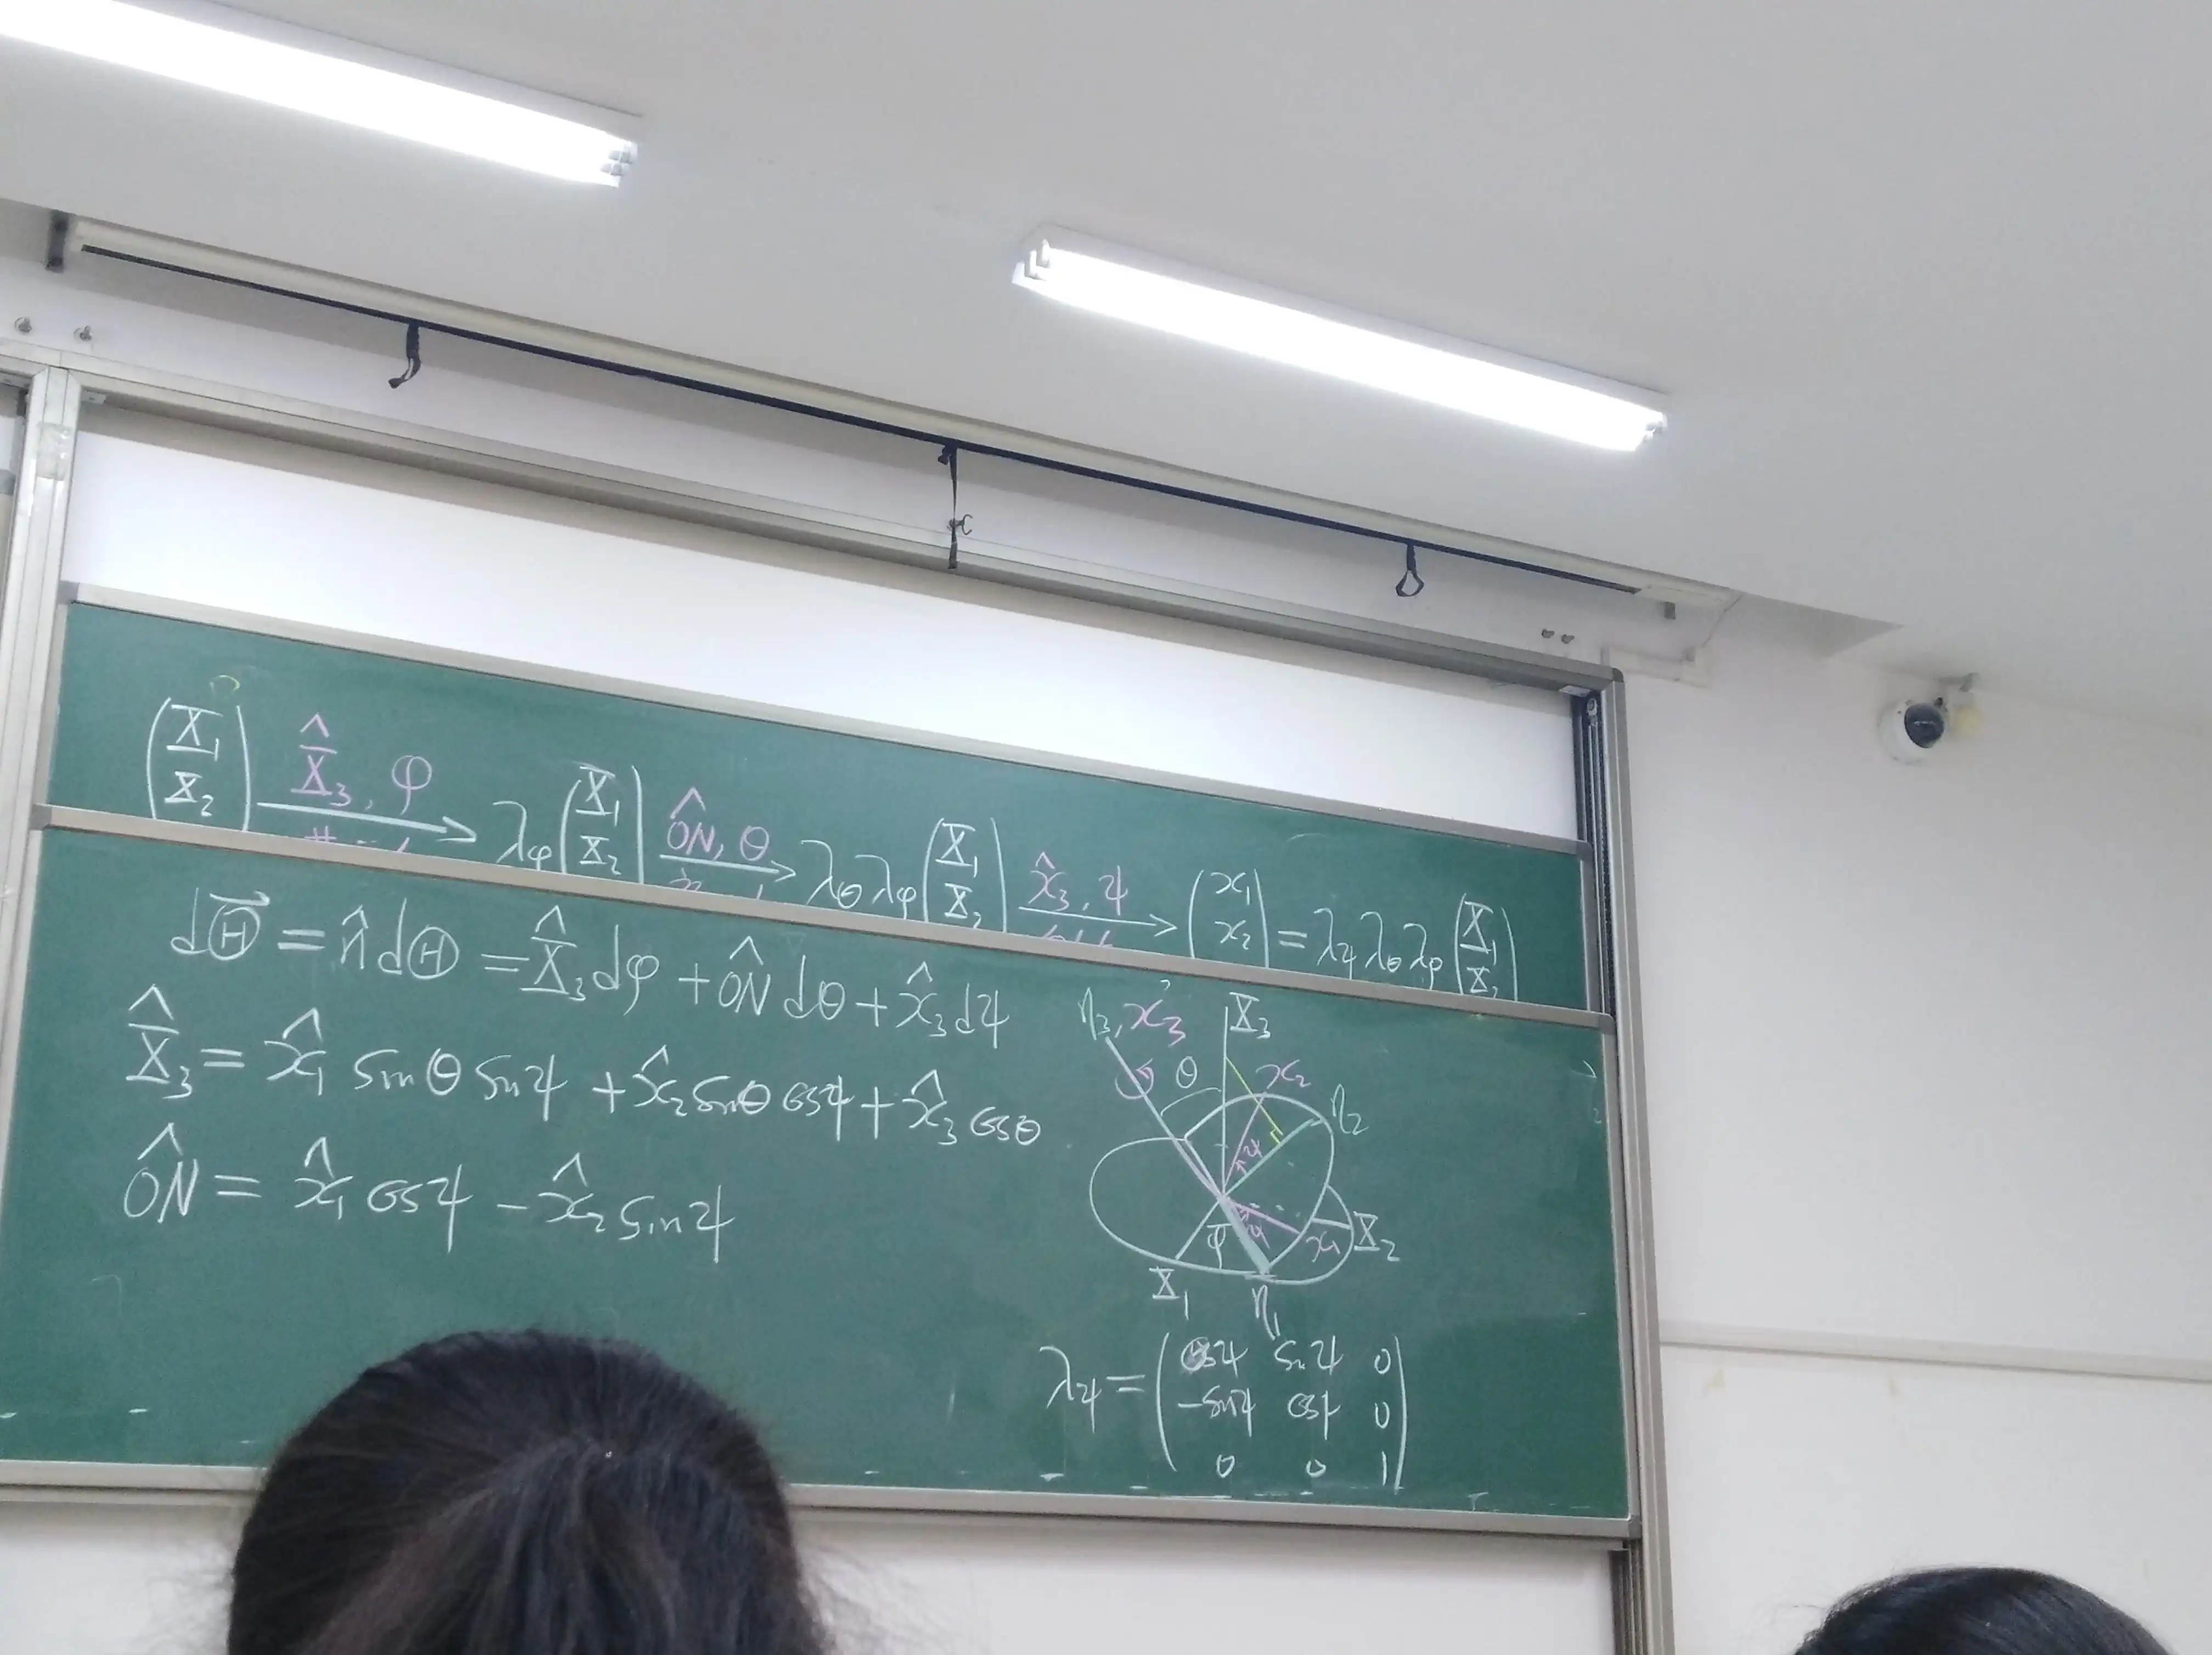 (X₁ X₂) X̂₃, φ → λφ (X₁ X₂) ÔN, θ → λθ λφ (X₁ X₂) x̂₃, ψ → (x₁ x₂) = λψ λθ λφ (X₁ X₂)
dΘ⃗ = n̂ dΘ = X̂₃ dφ + ÔN dθ + x̂₃ dψ
X̂₃ = x̂₁ sinθ sinψ + x̂₂ sinθ cosψ + x̂₃ cosθ
ÔN = x̂₁ cosψ − x̂₂ sinψ
η₃, x₃ X₃
θ x₂
η₂
ψ
φ ψ x₁ X₂
X₁ η₁
λψ = ( cosψ sinψ 0
−sinψ cosψ 0
0 0 1 )